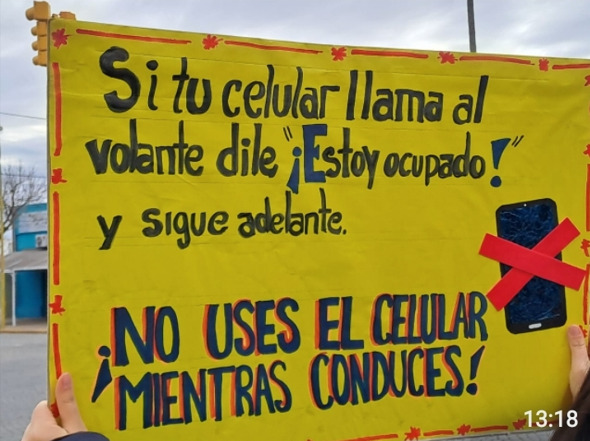 Si tu celular llama al
volante dile "¡Estoy ocupado!"
y sigue adelante.
¡NO USES EL CELULAR
MIENTRAS CONDUCES!
13:18